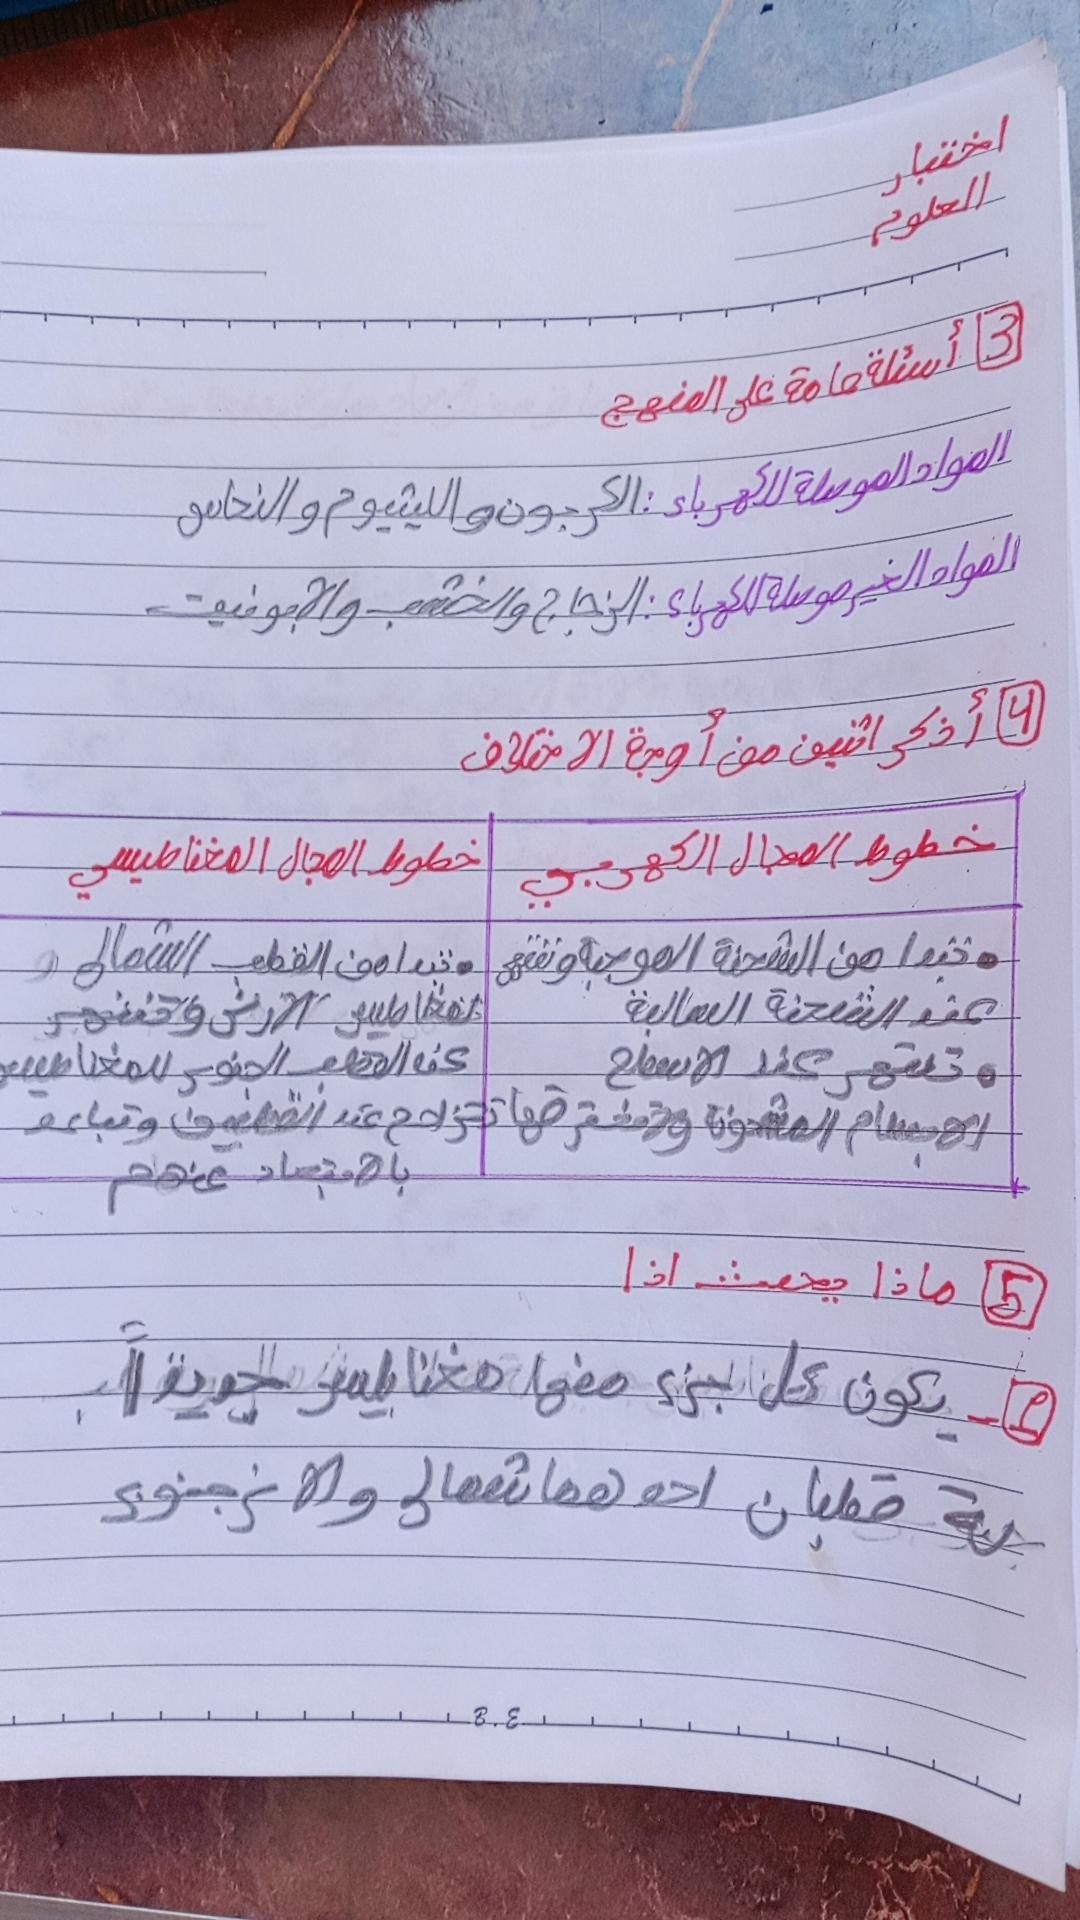 اختبار
العلوم
3 أسئلة عامة على المنهج
المواد الموصلة للكهرباء : الكربون والليثيوم والنحاس
المواد الغير موصلة للكهرباء : الزجاج والخشب والابونيت
4 أذكر اثنين من أوجة الاختلاف
خطوط المجال الكهربي
خطوط المجال المغناطيسي
• تبدا من الشحنة الموجبة وتنتهي
عند الشحنة السالبة
• تنتهي عند الاسطح
الاجسام المشحونة
• تبدا من القطب الشمالي
لمغناطيس الارض وتنتهي
عند القطب الجنوبي للمغناطيس
تتزاحم عند القطبين وتباعد
بالابتعاد عنهم
5 ماذا يحدث اذا
1 - يكون كل جزء منها مغناطيس
قطبان احدهما شمالي والاخر جنوبي
B.E